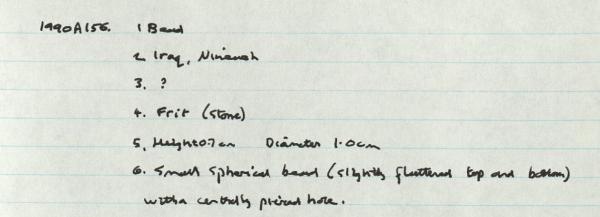 1990A156. 1 Bead
2. Iraq, Nineveh
3. ?
4. Frit (stone)
5. Height 0.7cm Diameter 1.0cm
6. Small spherical bead (slightly flattened top and bottom)
with a centrally pierced hole.